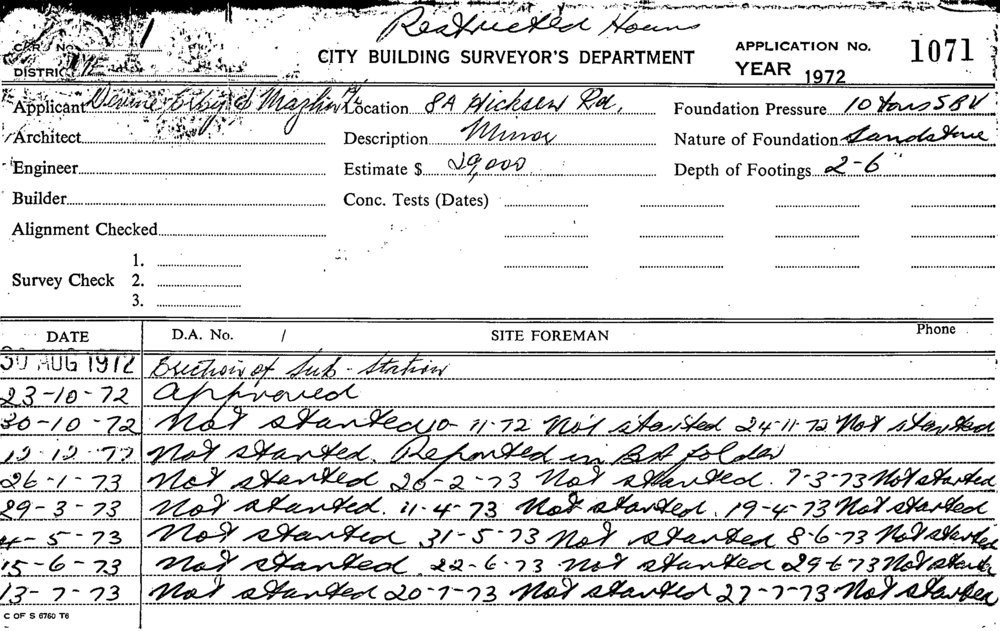 Restricted Hours
CARD No. 1
CITY BUILDING SURVEYOR'S DEPARTMENT
APPLICATION No. 1071
DISTRICT
YEAR 1972
Applicant Devine Erby & Mazlin Location 8A Hickson Rd, Foundation Pressure 10 tons SBV
Architect Description Minor Nature of Foundation Sandstone
Engineer Estimate $ 29,000 Depth of Footings 2-6"
Builder Conc. Tests (Dates)
Alignment Checked
1.
Survey Check 2.
3.
DATE D.A. No. / SITE FOREMAN Phone
30 AUG 1972 Erection of Sub-Station
23-10-72 Approved
30-10-72 Not started 10-11-72 Not started 24-11-72 Not started
12-12-72 Not started. Reported in BA folder
26-1-73 Not started 20-2-73 Not started. 7-3-73 Not started
29-3-73 Not started. 11-4-73 Not started. 19-4-73 Not started
4-5-73 Not started 31-5-73 Not started 8-6-73 Not started
15-6-73 Not started 22-6-73 Not started 29-6-73 Not started
13-7-73 Not started 20-7-73 Not started 27-7-73 Not started
C OF S 6760 T6